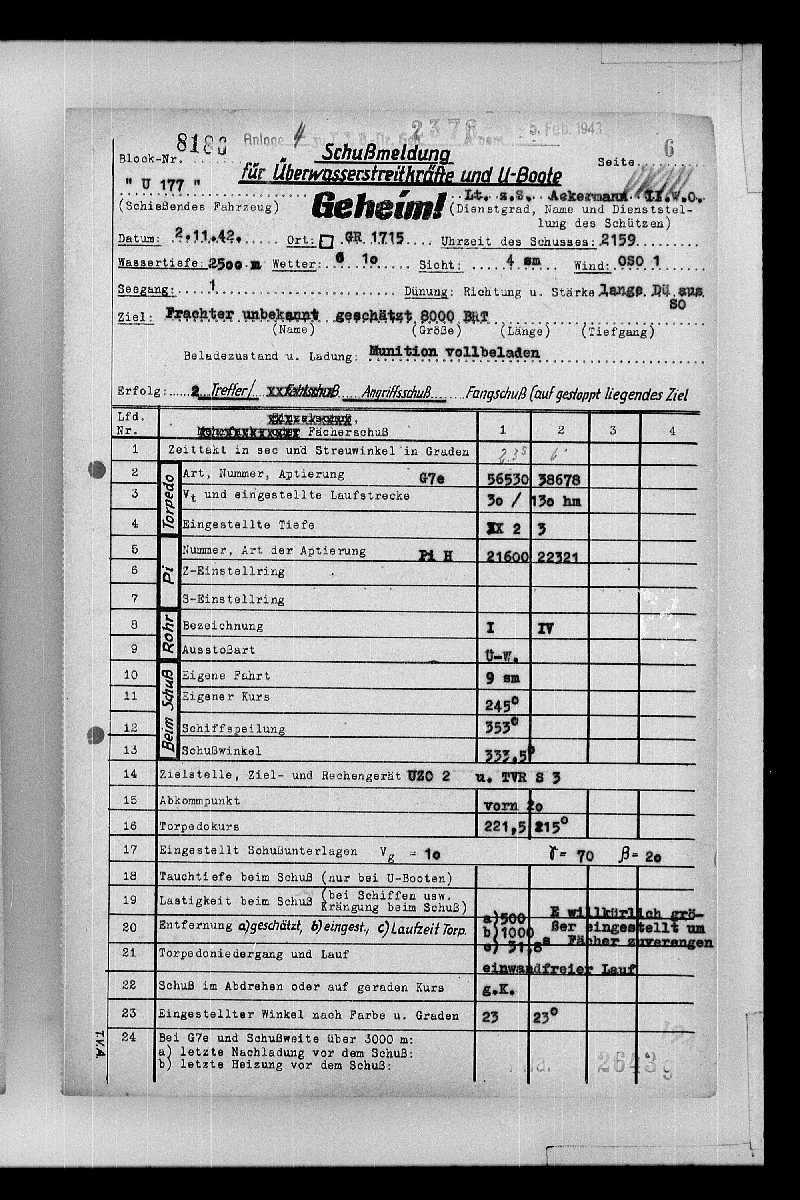 8188 Anlage 4 2376 5. Feb. 1943
Block-Nr. Schußmeldung Seite 6
für Überwasserstreitkräfte und U-Boote
" U 177 " Geheim! Lt. z.S. Ackermann II.W.O.
(Schießendes Fahrzeug) (Dienstgrad, Name und Dienststel-
lung des Schützen)
Datum: 2.11.42. Ort: GR 1715 Uhrzeit des Schusses: 2159
Wassertiefe: 2500 m Wetter: 10 Sicht: 4 sm Wind: OSO 1
Seegang: 1 Dünung: Richtung u. Stärke lange Dü aus
SO
Ziel: Frachter unbekannt geschätzt 8000 BRT
(Name) (Größe) (Länge) (Tiefgang)
Beladezustand u. Ladung: Munition vollbeladen
Erfolg: 2 Treffer/ Fehlschuß Angriffsschuß Fangschuß (auf gestoppt liegendes Ziel
Lfd. Einzelschuß,
Nr. Fächerschuß 1 2 3 4
1 Zeittakt in sec und Streuwinkel in Graden 2,3s 6°
Torpedo
2 Art, Nummer, Aptierung G7e 56530 38678
3 Vt und eingestellte Laufstrecke 30 / 130 hm
4 Eingestellte Tiefe 2 3
Pi
5 Nummer, Art der Aptierung Pi H 21600 22321
6 Z-Einstellring
7 S-Einstellring
Rohr
8 Bezeichnung I IV
9 Ausstoßart Ü-W.
Beim Schuß
10 Eigene Fahrt 9 sm
11 Eigener Kurs 245°
12 Schiffspeilung 353°
13 Schußwinkel 333,5°
14 Zielstelle, Ziel- und Rechengerät UZO 2 u. TVR S 3
15 Abkommpunkt vorn 20
16 Torpedokurs 221,5 215°
17 Eingestellt Schußunterlagen Vg = 10 γ = 70 β = 20
18 Tauchtiefe beim Schuß (nur bei U-Booten)
19 Lastigkeit beim Schuß (bei Schiffen usw.
Krängung beim Schuß)
20 Entfernung a) geschätzt, b) eingest., c) Laufzeit Torp. a) 500 E willkürlich grö-
b) 1000 ßer eingestellt um
c) 31,8s Fächer zuverengen
21 Torpedoniedergang und Lauf einwandfreier Lauf
22 Schuß im Abdrehen oder auf geraden Kurs g.K.
23 Eingestellter Winkel nach Farbe u. Graden 23 23°
24 Bei G7e und Schußweite über 3000 m:
a) letzte Nachladung vor dem Schuß:
b) letzte Heizung vor dem Schuß:
T.V.A.
2643 g